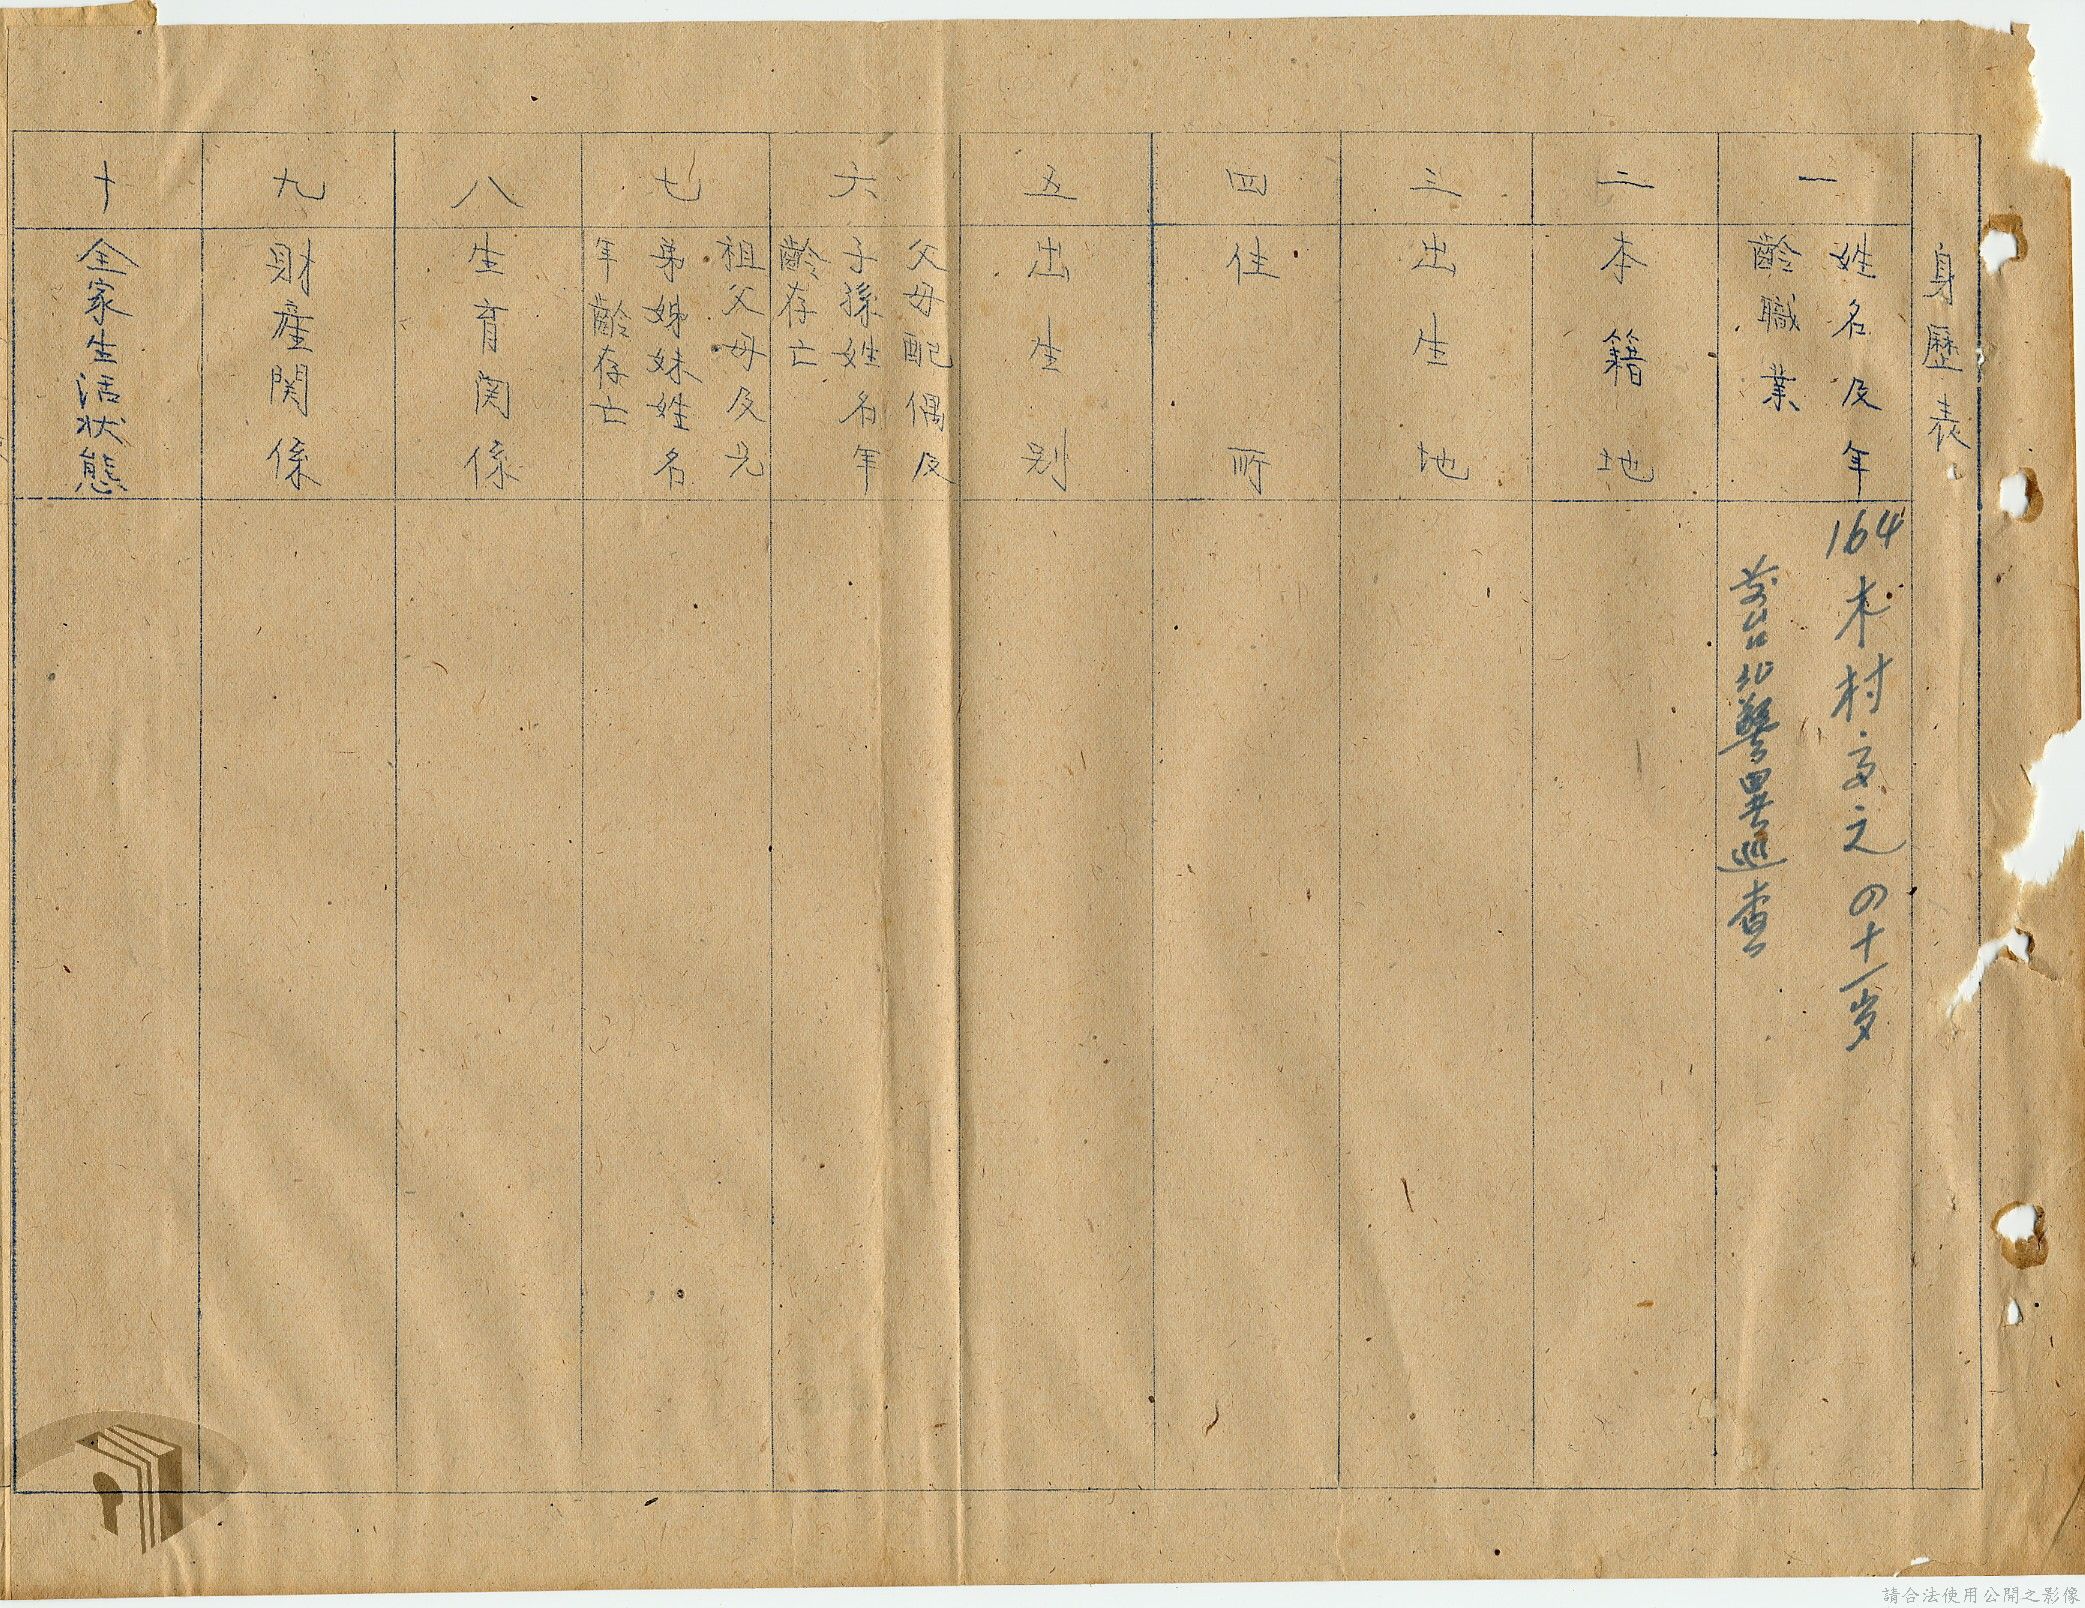 身歷表
一
姓名及年
齡職業
164 木村文之 四十一岁
前台北警異巡查
二
本籍地
三
出生地
四
住所
五
出生別
六
父母配偶及
子孫姓名年
齡存亡
七
祖父母及兄
弟姊妹姓名
年齡存亡
八
生育関係
九
財産関係
十
全家生活状態
請合法使用公開之影像